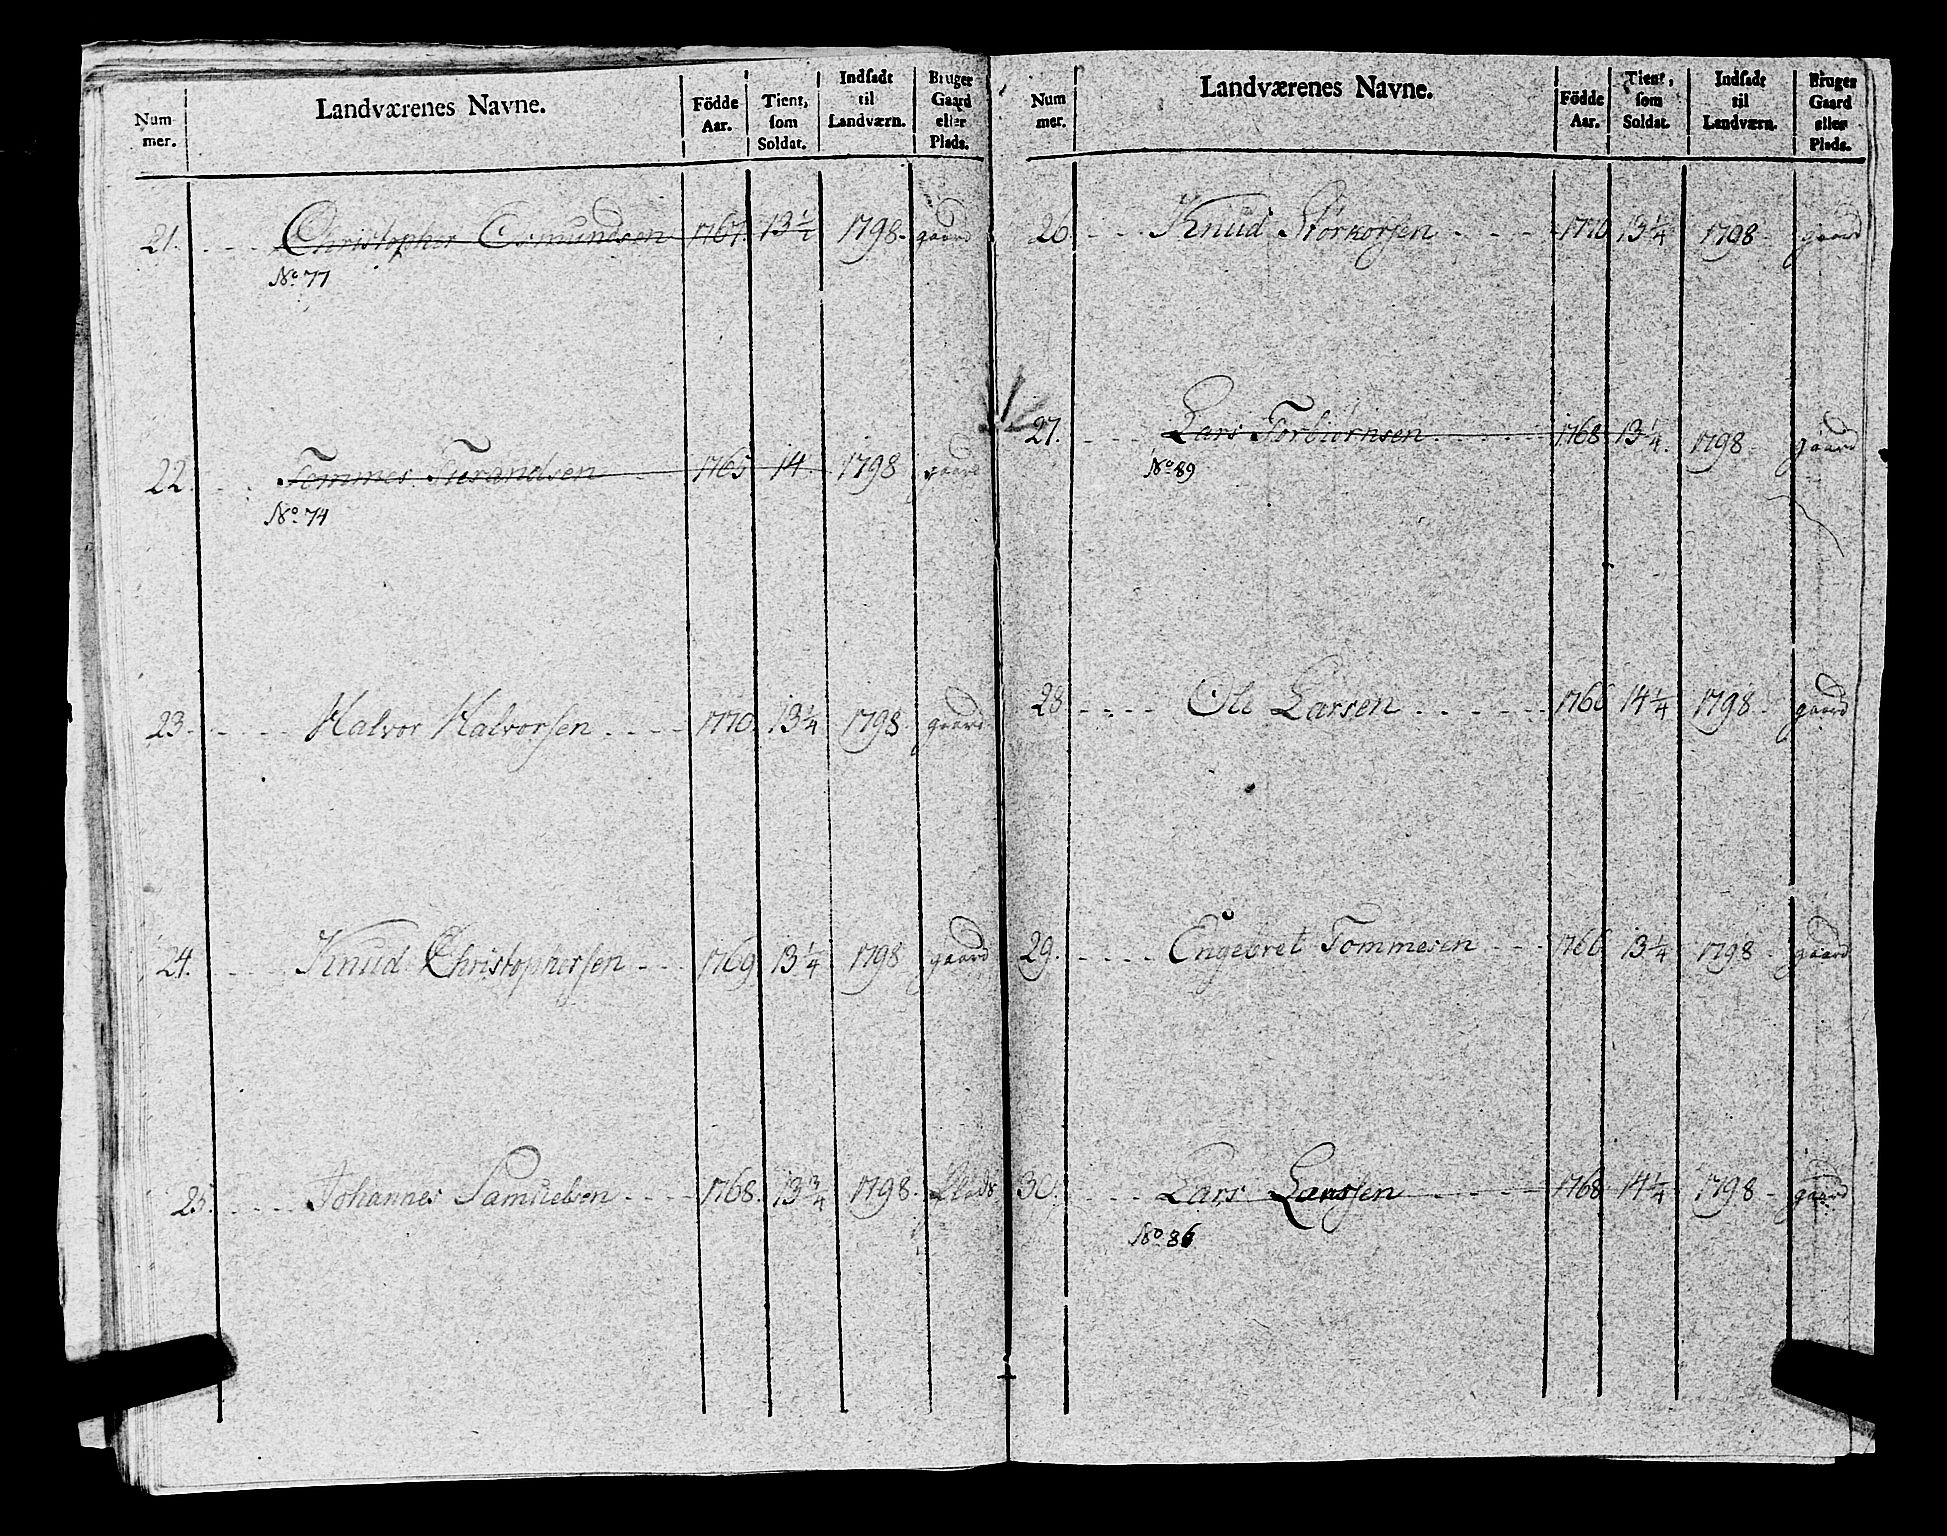 Num-
mer.
Landværenes Navne.
Födde
Aar.
Tient,
som
Soldat.
Indsadt
til
Landværn.
Bruger
Gaard
eller
Plads.
21. Christopher Osmundsen 1767. 13 1/2 1798. gaard
No. 77
22. Tommes 1765 14. 1798 gaard
No. 74
23. Halvor Halvorsen 1770. 13 1/4 1798 gaard
24. Knud Christophersen 1769 13 1/4 1798 gaard
25. Johannes Samuelsen 1768. 13 3/4 1798. Plads
Num
mer.
Landværenes Navne.
Födde
Aar.
Tient,
som
Soldat.
Indsadt
til
Landværn.
Bruger
Gaard
eller
Plads.
26 Knud 1770 13 1/4 1798 gaard
27. Lars Torbiørnsen 1768 13 1/4. 1798 gaard
No. 89
28 Ole Larsen 1766 14 1/4 1798 gaard
29. Engebret Tommesen 1766 13 1/4 1798 gaard
30. Lars Larssen 1768 14 1/4 1798 gaard
No. 86